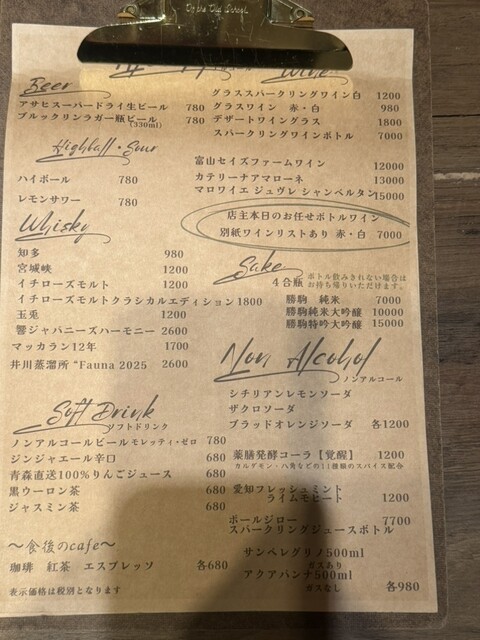 Beer
アサヒスーパードライ生ビール 780
ブルックリンラガー瓶ビール 780
(330ml)
Highball・Sour
ハイボール 780
レモンサワー 780
Whisky
知多 980
宮城峡 1200
イチローズモルト 1200
イチローズモルトクラシカルエディション1800
玉兎 1200
響ジャパニーズハーモニー 2600
マッカラン12年 1700
井川蒸溜所 "Fauna 2025 2600
Wine
グラススパークリングワイン白 1200
グラスワイン 赤・白 980
デザートワイングラス 1800
スパークリングワインボトル 7000
富山セイズファームワイン 12000
カテリーナアマローネ 13000
マロワイエ ジュヴレ シャンベルタン15000
店主本日のお任せボトルワイン
別紙ワインリストあり 赤・白 7000
Sake
4合瓶
ボトル飲みきれない場合は
お持ち帰りいただけます。
勝駒 純米 7000
勝駒純米大吟醸 10000
勝駒特吟大吟醸 15000
Non Alcohol
ノンアルコール
シチリアンレモンソーダ
ザクロソーダ
ブラッドオレンジソーダ 各1200
薬膳発酵コーラ【覚醒】 1200
カルダモン・八角などの11種類のスパイス配合
愛知フレッシュミント
ライムモヒート 1200
ポールジロー 7700
スパークリングジュースボトル
サンペレグリノ500ml
ガスあり
アクアパンナ500ml
ガスなし 各980
Soft Drink
ソフトドリンク
ノンアルコールビールモレッティ・ゼロ 780
ジンジャエール辛口 680
青森直送100%りんごジュース 680
黒ウーロン茶 680
ジャスミン茶 680
～食後のcafe～
珈琲 紅茶 エスプレッソ 各680
表示価格は税別となります